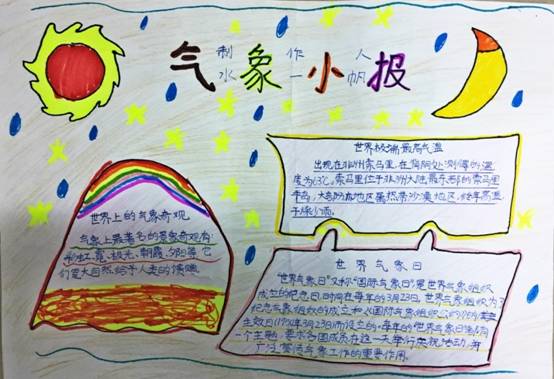 制作人
气象小报
水一帆
世界上的气象奇观
气象上最著名的景象奇观有:
彩虹、霞、极光、朝霞、夕阳等它
们是大自然给予人类的馈赠
世界极端最高气温
出现在非洲索马里,在阴阴处测得的温
度为63℃,索马里位于非洲大陆最东部的索马里
半岛,大部分地区属热带沙漠地区,终年高温
干燥少雨。
世界气象日
"世界气象日"又称"国际气象日"是世界气象组织
成立的纪念日,时间在每年的3月23日。世界气象组织为了
纪念气象组织的成立和《国际气象组织公约》
生效日(1950年3月23日)而设立的。每年的"世界气象日"都有
一个主题,要求各国成员在这一天举行庆祝活动,并
广泛宣传气象工作的重要作用。